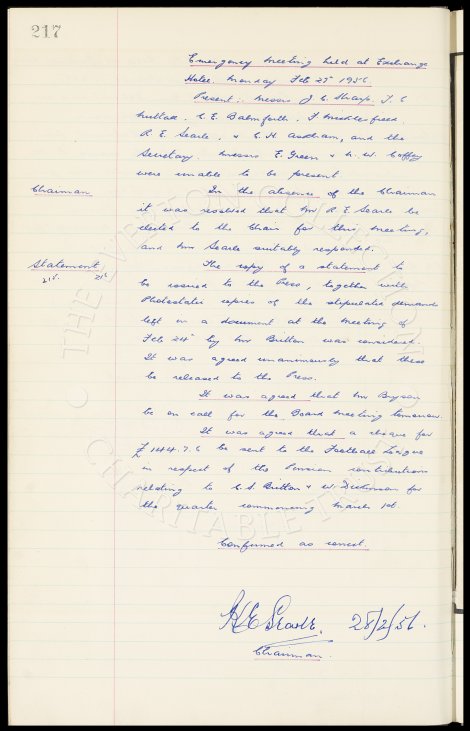 217
Emergency Meeting held at Exchange
Hotel. Monday Feb 27 1956
Present:. Messrs J C Sharp. T. C
Nuttall. C. E. Balmforth. F Micklesfreed.
R. E. Searle. & C. H. Askham, and the
Secretary. Messrs E. Green & N. W. Coffey
were unable to be present
Chairman
In the absence of the Chairman
it was resolved that Mr R E Searle be
elected to the Chair for this Meeting,
and Mr Searle suitably responded.
Statement
218. 216
The copy of a statement to
be issued to the Press, together with
Photostatic copies of the stipulated demands
left in a document at the Meeting of
Feb 24th by Mr Britton was considered.
It was agreed unanimously that these
be released to the Press.
It was agreed that Mr Bryson
be on call for the Board Meeting tomorrow.
It was agreed that a cheque for
£144.7.6 be sent to the Football League
in respect of the Pension contributions
relating to C. S. Britton & W. Dickinson for
the quarter commencing March 1st
Confirmed as correct.
R E Searle. 28/2/56.
Chairman.
THE EVERTON COLLECTION
CHARITABLE TRUST